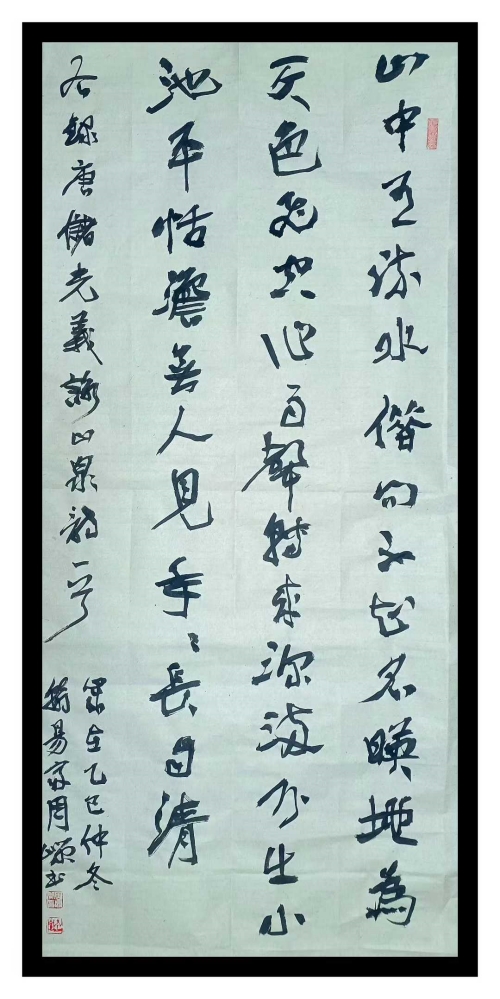 山中有流水借問不知名暎地為
天色飛空作雨聲轉來深滿分出小
池平恬澹無人見年々長自清
右錄唐儲光義詠山泉詩一首
歲在乙巳仲冬
易齋周書